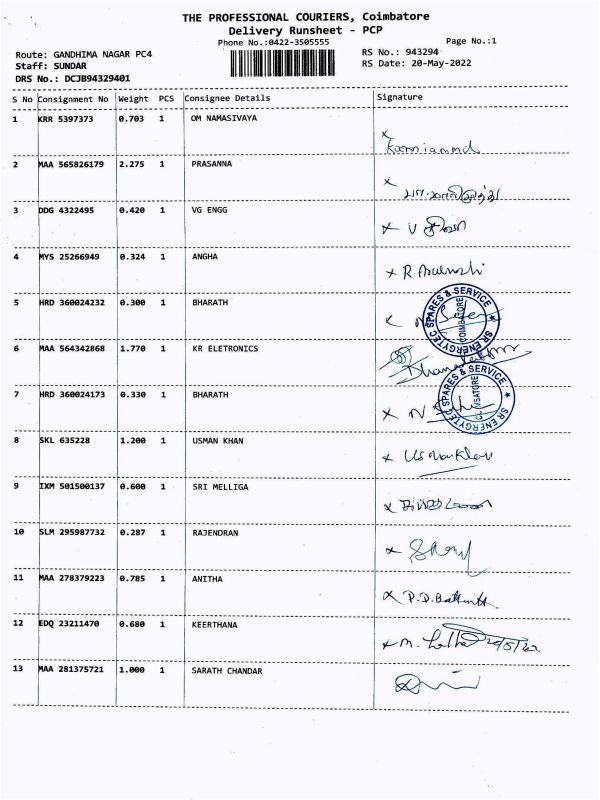 THE PROFESSIONAL COURIERS, Coimbatore
Delivery Runsheet - PCP
Phone No.:0422-3505555
Page No.:1
Route: GANDHIMA NAGAR PC4
RS No.: 943294
Staff: SUNDAR
RS Date: 20-May-2022
DRS No.: DCJB94329401
S No Consignment No Weight PCS Consignee Details Signature
1 KRR 5397373 0.703 1 OM NAMASIVAYA
x
2 MAA 565826179 2.275 1 PRASANNA
x
3 DDG 4322495 0.420 1 VG ENGG
x V
4 MYS 25266949 0.324 1 ANGHA
x R.
5 HRD 360024232 0.300 1 BHARATH
SR ENERGYTEC SPARES & SERVICE COIMBATORE
6 MAA 564342868 1.770 1 KR ELETRONICS
7 HRD 360024173 0.330 1 BHARATH
x N
SR ENERGYTEC SPARES & SERVICE
8 SKL 635228 1.200 1 USMAN KHAN
x Usman Khan
9 IXM 501500137 0.600 1 SRI MELLIGA
x
10 SLM 295987732 0.287 1 RAJENDRAN
x
11 MAA 278379223 0.785 1 ANITHA
x P.D.
12 EDQ 23211470 0.680 1 KEERTHANA
x M. Latha
13 MAA 281375721 1.000 1 SARATH CHANDAR